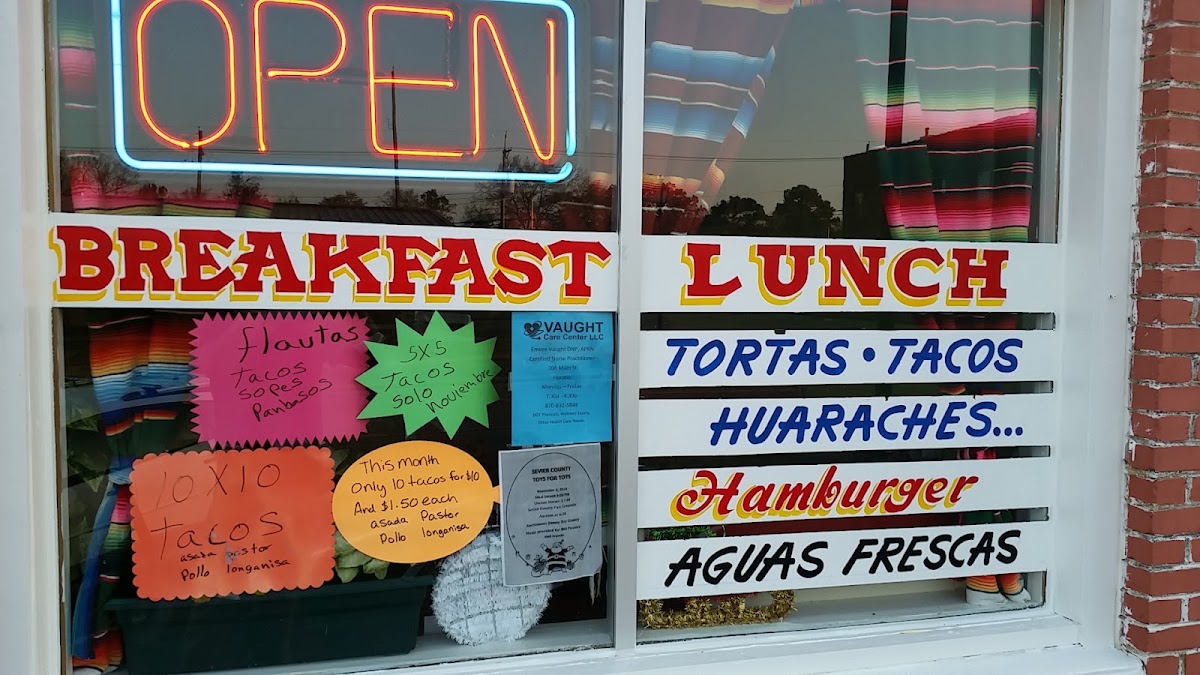 OPEN
BREAKFAST
LUNCH
flautas
Tacos
sopes
Pambasos
5X5
Tacos
solo
noviembre
VAUGHT
Care Center LLC
Certified Nurse Practitioner
Monday - Friday
TORTAS • TACOS
HUARACHES...
Hamburger
AGUAS FRESCAS
10X10
Tacos
asada pastor
Pollo longanisa
This month
Only 10 tacos for $10
And $1.50 each
asada Pastor
Pollo longanisa
SEVIER COUNTY
TOYS FOR TOTS